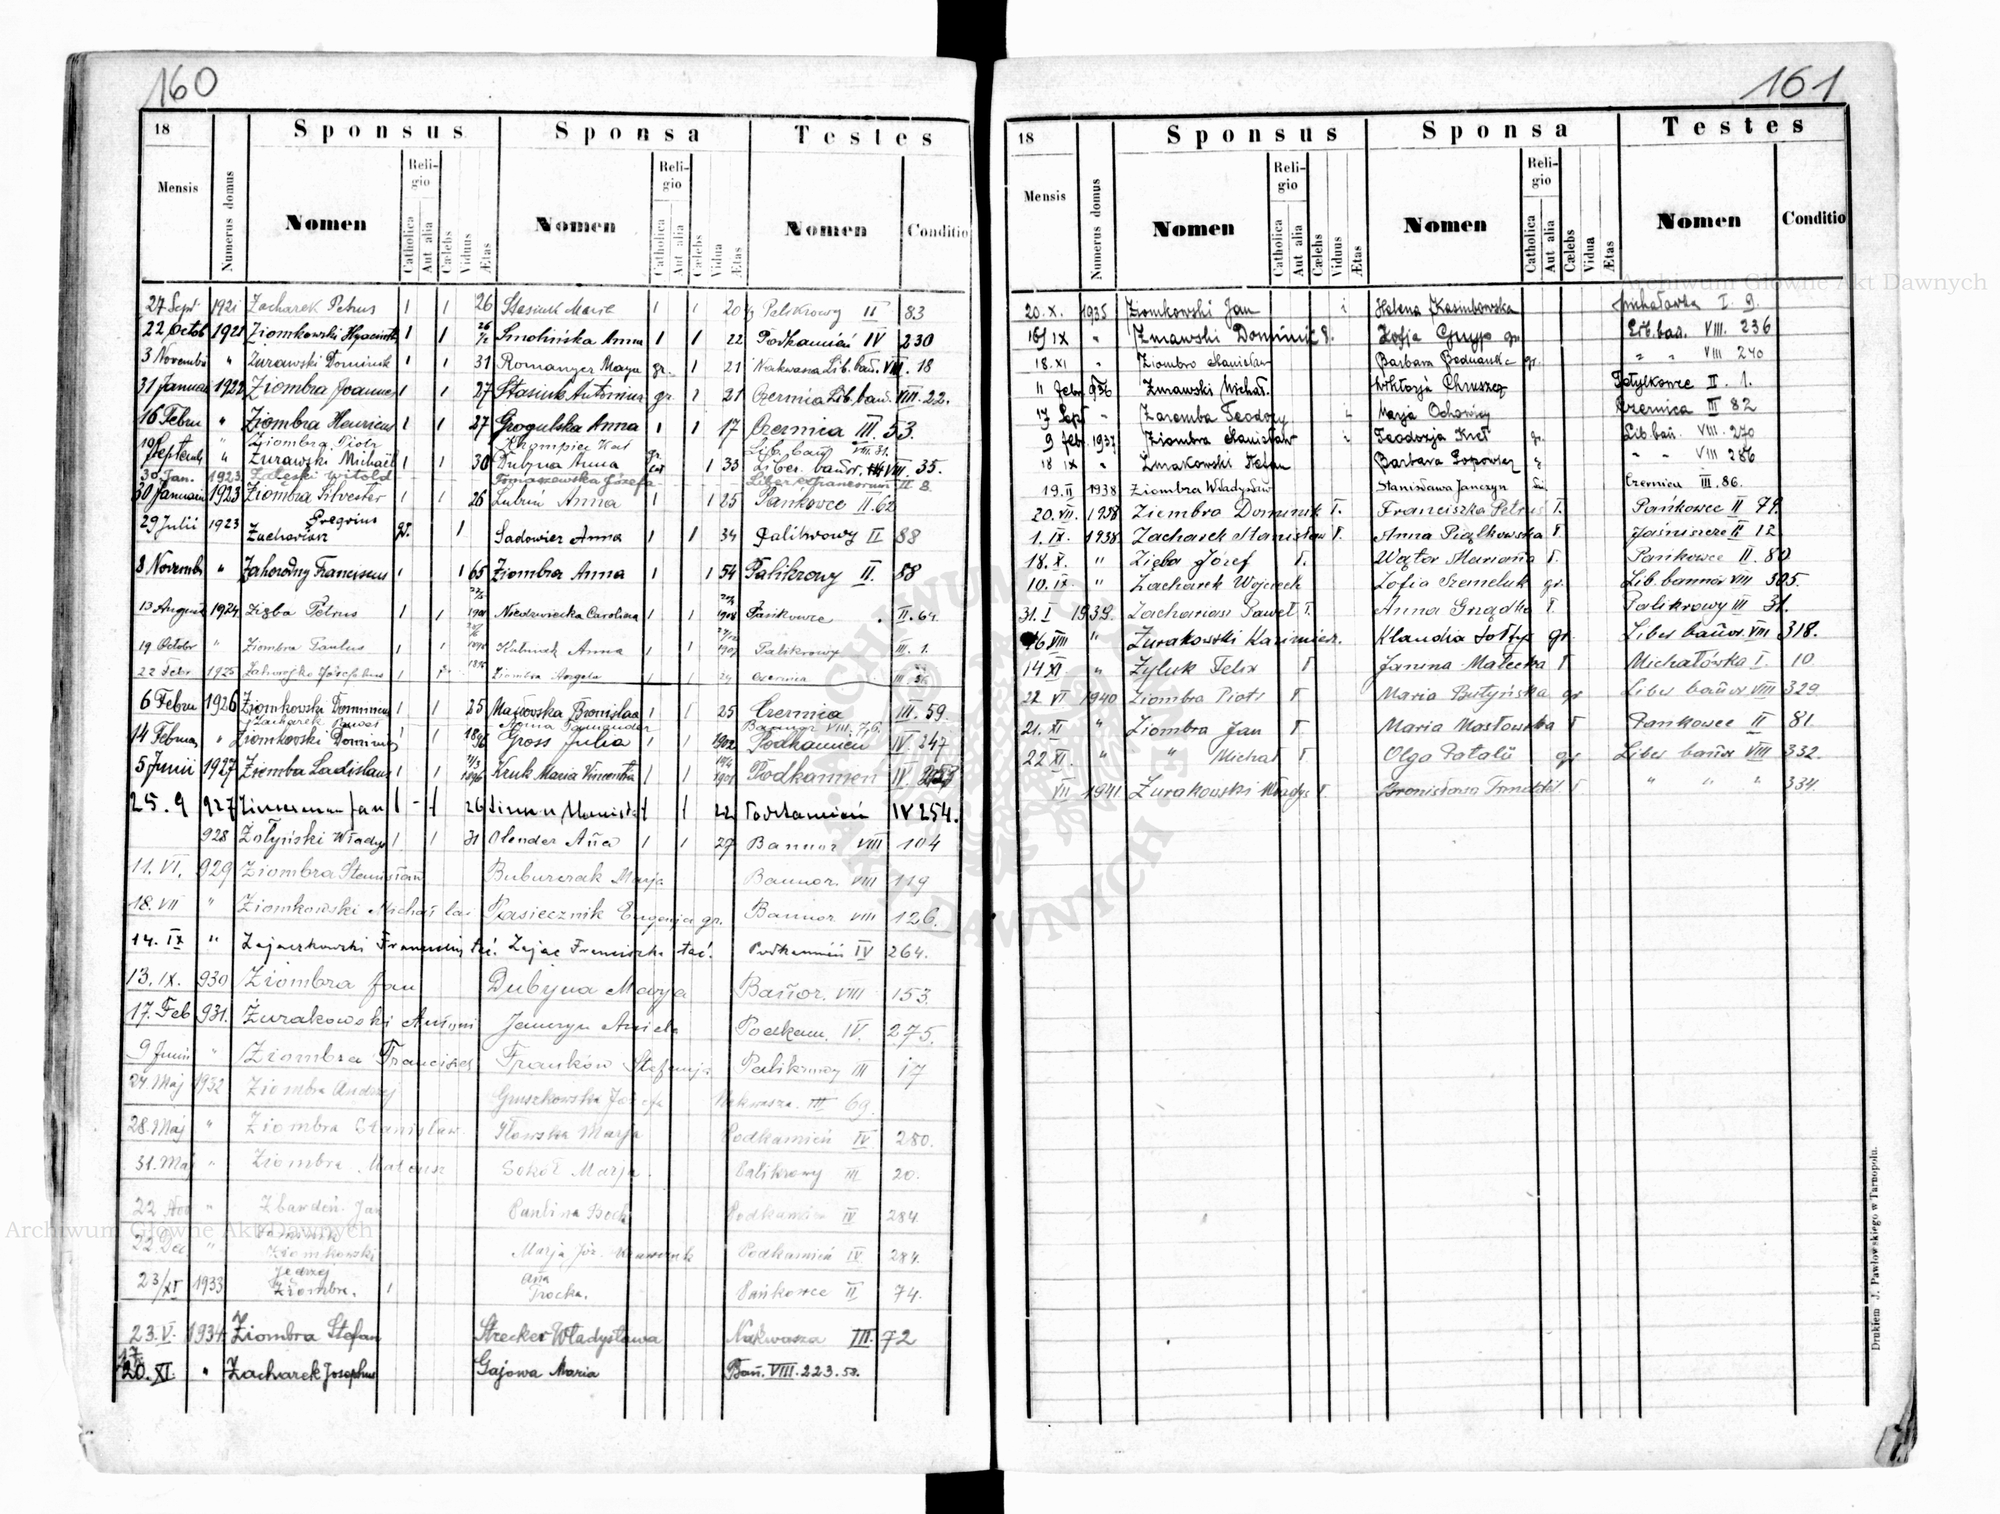 160
18 Sponsus Sponsa Testes
Mensis Numerus domus Nomen Religio Catholica Aut alia Cælebs Viduus Ætas Nomen Religio Catholica Aut alia Cælebs Vidua Ætas Nomen Conditio
27 Sept 1921 Zacharek Petrus 1 1 26 Stasiuk Maria 1 1 20 Palikrowy II 83
22 Octob 1921 Ziomkowski Hyacinth 1 1 26 Smolińska Anna 1 1 22 Podkamień IV 230
3 Novembr " Żurawski Dominik 1 1 31 Romanyer Marya gr. 1 21 Nakwasza Lib. bań. VIII. 18
31 Januar 1922 Ziombra Joannes 1 1 27 Stasiuk gr 1 21 Czernica Lib. bań. VIII. 22.
16 Febru " Ziombra Henricus 1 1 27 Grogulska Anna 1 1 17 Czernica III. 53.
Ziombra Piotr Lib. bań VIII. 31.
19 Septemb " Żurawski Michael 1 1 30 Dubyna Anna 1 33 Liber bańor. VIII. 35.
30 Jan. 1923 Zaleski Witold Tomaszewska Józefa Liber II 3.
30 Januar 1923 Ziombra Silvester 1 1 26 Lubiń Anna 1 1 25 Pańkowce II. 62
29 Julii 1923 Peregrinus
Zachariasz gr. 1 Sadowier Anna 1 1 34 Palikrowy II 88
8 Novembr " Zahorodny Franciscus 1 1 65 Ziombra Anna 1 1 54 Palikrowy II. 88
13 August 1924 Zięba Petrus 1 1 1901 Niedzwiecka Carolina 1 1 1904 Pańkowce II. 64.
19 Octobr " Ziombra Paulus 1 1 Anna 1 1 Palikrowy III. 1.
22 Febr 1925 Josephus 1 1 Ziombra Angela 1 1 24 Czernica III
6 Febru 1926 Ziomkowski 1 1 25 Maćkowska Bronislaa 1 1 25 Czernica III. 59.
Zacharek Anna Bannor VIII. 76.
14 Februar " Ziomkowski Dominic 1 1 1896 Gross Julia 1 1 1902 Podkamień IV. 247
5 Junii 1927 Ziemba Ladislaus 1 1 1896 Kruk Maria Vincentia 1 1 1901 Podkamień IV. 253
25. 9 927 Zimerman Jan 1 1 26 1 1 22 Podkamień IV 254.
928 Żołyński Władys 1 1 31 Olender Ańa 1 1 27 Bannor VIII 104
11. VI. 929 Ziombra Stanisław Buburczak Marja Bannor. VIII 119
18. VII " Ziomkowski Michał łac Pasiecznik Eugenja gr. Bannor VIII 126.
14. IX " Zajaczkowski Franciszek łać. Zając Franciszka łać. Podkamień IV 264.
13. IX. 930 Ziombra Jan Dubyna Marja Bańor. VIII 153.
17. Feb 931. Żurakowski Antoni Janczyn Aniela Podkam. IV. 275.
9 Junii " Ziombra Franciszek Franków Stefanja Palikrowy III 17
24 Maj 1932 Ziombra Andrzej Gruszkowska Józefa Nakwasza. III 69.
28. Maj " Ziombra Stanisław. Iłowska Marja Podkamień IV 280.
31. Maj " Ziombra Mateusz Sokół Marja. Palikrowy III 20.
22 Nov " Zbardeń Jan Paulina Bock Podkamień IV 284.
22. Dec " Dominik
Ziomkowski Marja Józ. Krawczuk Podkamień IV. 284.
23/XI 1933 Jędrzej
Ziombra. 1 Ańa
Procka. Pańkowce II 74.
23. V. 1934 Ziombra Stefan Strecker Władysława Nakwasza III. 72
20. XI. " Zacharek Josephus Gajowa Maria Bań. VIII. 223. 50.
161
18 Sponsus Sponsa Testes
Mensis Numerus domus Nomen Religio Catholica Aut alia Cælebs Viduus Ætas Nomen Religio Catholica Aut alia Cælebs Vidua Ætas Nomen Conditio
20. X. 1935 Ziomkowski Jan Helena Kasinkowska Michałówka I. 9.
16/IX " Żurawski Dominik Zofja gr. Lib. bań. VIII. 236
18. XI " Ziombro Stanisław Barbara Bednarek gr. " " VIII 240
11 febr 936 Żurawski Michał. Wiktorja Chruszcz Potylkowce II. 1.
17 Sept " Zaremba Teodozy Marja Ochowicz Czernica III 82
9 feb. 1937 Ziombra Stanisław Teodozja Kret gr. Lib. bań. VIII. 270
18 IX " Żmakowski Stefan Barbara Popowicz " " VIII 286
19. II 1938 Ziombra Władysław Stanisława Janczyn Czernica III. 86.
20. VII. 1938 Ziembra Dominik Ł. Franciszka Petrus Ł. Pańkowce II 79.
1. IX. 1938 Zacharek Stanisław Ł. Anna Piątkowska Ł. Jaśniszcze II 12
18. X. " Zięba Józef Ł. Wątor Marianna Ł. Pańkowce II. 80
10. IX " Zacharek Wojciech Zofia Szemeluk gr. Lib. bannor VIII 305.
31. I 1939. Zachariasz Paweł Ł. Anna Grządka Ł. Palikrowy III 31.
16 VIII " Żurakowski Kazimierz. Klaudia Sołtys gr. Liber bańor. VIII 318.
14 XI " Żyluk Felix Ł Janina Małecka Ł Michałówka I. 10
22 VI 1940 Ziombra Piotr Ł Maria Butyńska gr Liber bańor VIII 329.
21. XI " Ziombra Jan Ł. Maria Masłowska Ł Pankowce II 81.
22 XI. " " Michał Ł Olga Patalü gr Liber bańor VIII 332.
VII 1941 Żurakowski Władys Ł. Bronisława Ł " " " 334.
Drukiem J. Pawłowskiego w Tarnopolu.
Archiwum Główne Akt Dawnych
Archiwum Główne Akt Dawnych